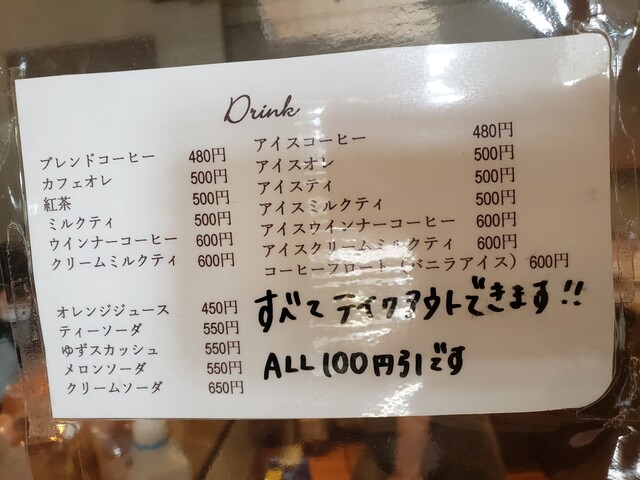 Drink
ブレンドコーヒー 480円
カフェオレ 500円
紅茶 500円
ミルクティ 500円
ウインナーコーヒー 600円
クリームミルクティ 600円
アイスコーヒー 480円
アイスオレ 500円
アイスティ 500円
アイスミルクティ 500円
アイスウインナーコーヒー 600円
アイスクリームミルクティ 600円
コーヒーフロート（バニラアイス） 600円
オレンジジュース 450円
ティーソーダ 550円
ゆずスカッシュ 550円
メロンソーダ 550円
クリームソーダ 650円
すべてテイクアウトできます!!
ALL 100円引です